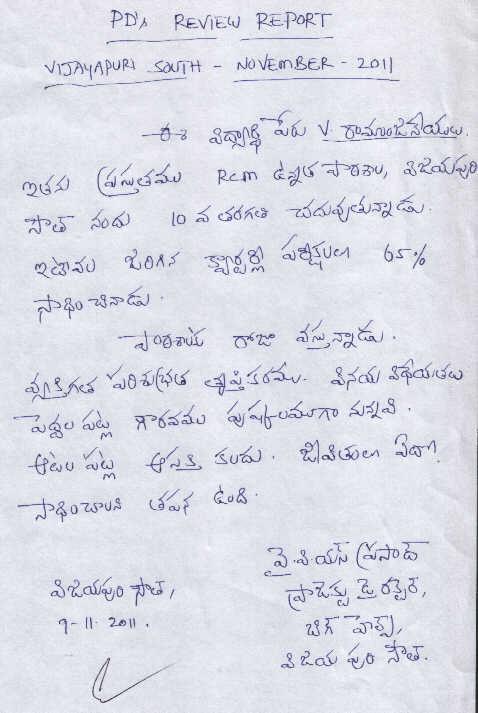 PD's REVIEW REPORT
VIJAYAPURI SOUTH - NOVEMBER - 2011
ఈ విద్యార్థి పేరు V. రామాంజనేయులు.
ఇతను ప్రస్తుతము Rcm ఉన్నత పాఠశాల, విజయపురి
సౌత్ నందు 10 వ తరగతి చదువుతున్నాడు.
ఇటీవల జరిగిన క్వార్టర్లీ పరీక్షలలో 65%
సాధించినాడు.
పాఠశాలకు రోజూ వస్తున్నాడు.
వ్యక్తిగత పరిశుభ్రత తృప్తికరము. వినయ విధేయతలు
పెద్దల పట్ల గౌరవము పుష్కలముగా నున్నవి.
ఆటల పట్ల ఆసక్తి కలదు. జీవితంలో ఏదో
సాధించాలని తపన ఉంది.
వై.వి.యస్ ప్రసాద్
విజయపురి సౌత్,
ప్రాజెక్టు డైరక్టర్,
9-11-2011.
బిగ్ హెల్ప్,
విజయపురి సౌత్.